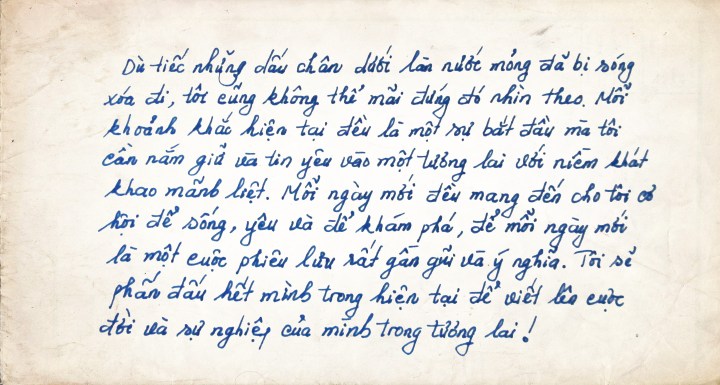 Dù tiếc những dấu chân dưới làn nước mỏng đã bị sóng
xóa đi, tôi cũng không thể mãi đứng đó nhìn theo. Mỗi
khoảnh khắc hiện tại đều là một sự bắt đầu mà tôi
cần nắm giữ và tin yêu vào một tương lai với niềm khát
khao mãnh liệt. Mỗi ngày mới đều mang đến cho tôi cơ
hội để sống, yêu và để khám phá, để mỗi ngày mới
là một cuộc phiêu lưu rất gần gũi và ý nghĩa. Tôi sẽ
phấn đấu hết mình trong hiện tại để viết lên cuộc
đời và sự nghiệp của mình trong tương lai!